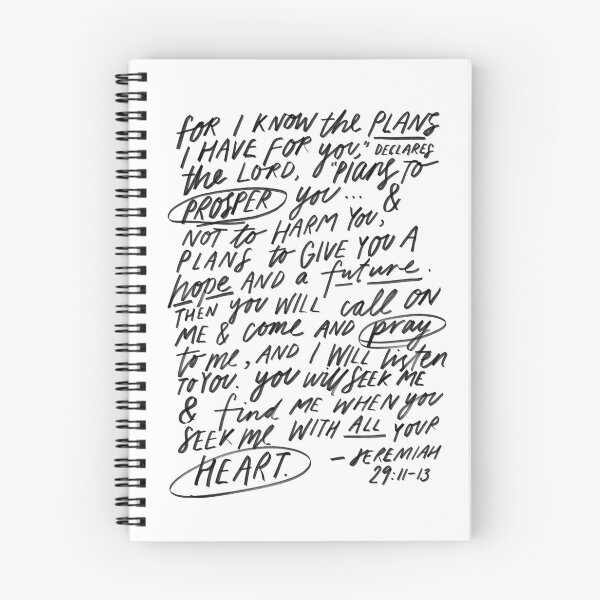 for I KNOW the PLANS
I HAVE FOR you," DECLARES
the LORD, "Plans to
PROSPER you... &
NOT to HARM YOU,
PLANS to GIVE YOU A
hope AND a future.
THEN you WILL call ON
ME & come AND pray
to me, AND I WILL listen
TO YOU. you will SEEK ME
& find ME WHEN you
SEEK me WITH ALL YOUR
HEART. – JEREMIAH
29:11-13